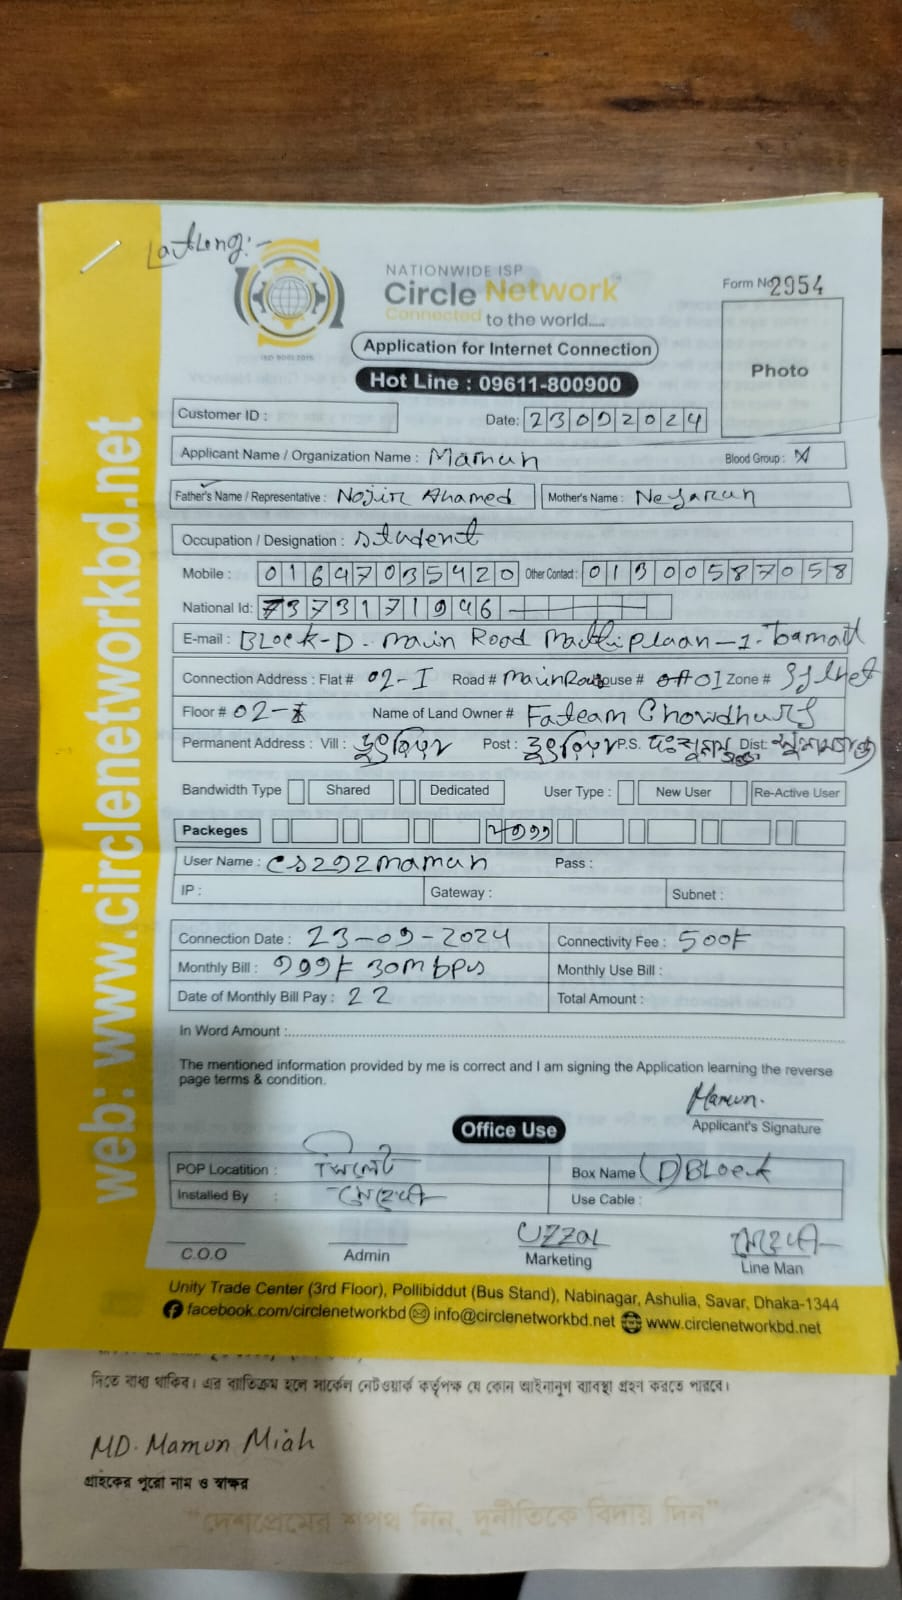 LatLong:-
NATIONWIDE ISP
Circle Network
Connected to the world.....
Form No 2954
Application for Internet Connection
Photo
Hot Line : 09611-800900
ISO 9001:2015
Customer ID :
Date: 23092024
Applicant Name / Organization Name : Mamun Blood Group : X
Father's Name / Representative : Nojir Ahamed Mother's Name : Nejarun
Occupation / Designation : student
Mobile : 01647035420 Other Contact : 01300587058
National Id: 7373171946
E-mail : Block-D. Main Road
Connection Address : Flat # 02-I Road # Main Road House # 01 Zone # Sylhet
Floor # 02- Name of Land Owner # Fateam Chowdhury
Permanent Address : Vill : Post : P.S. Dist:
Bandwidth Type Shared Dedicated User Type : New User Re-Active User
Packeges
User Name : cs292mamun Pass :
IP : Gateway : Subnet :
Connection Date : 23-09-2024 Connectivity Fee : 500৳
Monthly Bill : 999৳ 30mbps Monthly Use Bill :
Date of Monthly Bill Pay : 22 Total Amount :
In Word Amount :
The mentioned information provided by me is correct and I am signing the Application learning the reverse
page terms & condition.
Mamun.
Applicant's Signature
Office Use
POP Locatition : সিলেট Box Name (D) BLock
Installed By : মেহেদী Use Cable :
UZZAL মেহেদী
C.O.O Admin Marketing Line Man
Unity Trade Center (3rd Floor), Pollibiddut (Bus Stand), Nabinagar, Ashulia, Savar, Dhaka-1344
facebook.com/circlenetworkbd info@circlenetworkbd.net www.circlenetworkbd.net
web: www.circlenetworkbd.net
দিতে বাধ্য থাকিব। এর ব্যতিক্রম হলে সার্কেল নেটওয়ার্ক কর্তৃপক্ষ যে কোন আইনানুগ ব্যবস্থা গ্রহণ করতে পারবে।
MD. Mamun Miah
গ্রাহকের পুরো নাম ও স্বাক্ষর
"দেশপ্রেমের শপথ নিন, দুর্নীতিকে বিদায় দিন"